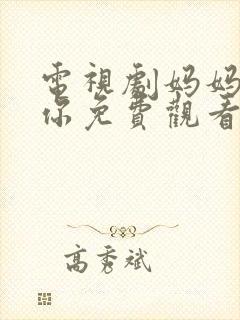 電視劇妈妈
你免費觀看
高秀斌